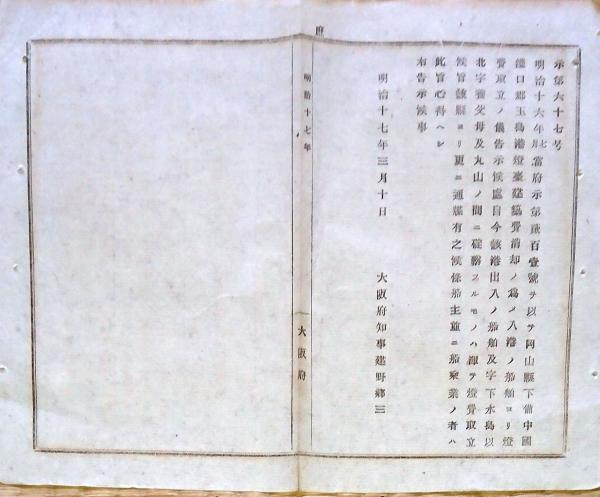 府
示第六十七号
明治十六年七月當府示第貳百壹號ヲ以テ岡山縣下備中國
淺口郡玉島港燈臺建築費消却ノ爲メ入港ノ船舶ヨリ燈
費取立ノ儀告示候處自今該港出入ノ船舶及字下水島以
北字養父母及丸山ノ間ニ碇繋スルモノハ渾テ燈費取立
候旨該縣ヨリ更ニ通牒有之候條船主並ニ船乘業ノ者ハ
此旨心得ヘシ
右告示候事
明治十七年三月十日
大阪府知事建野郷三
明治十七年
大阪府